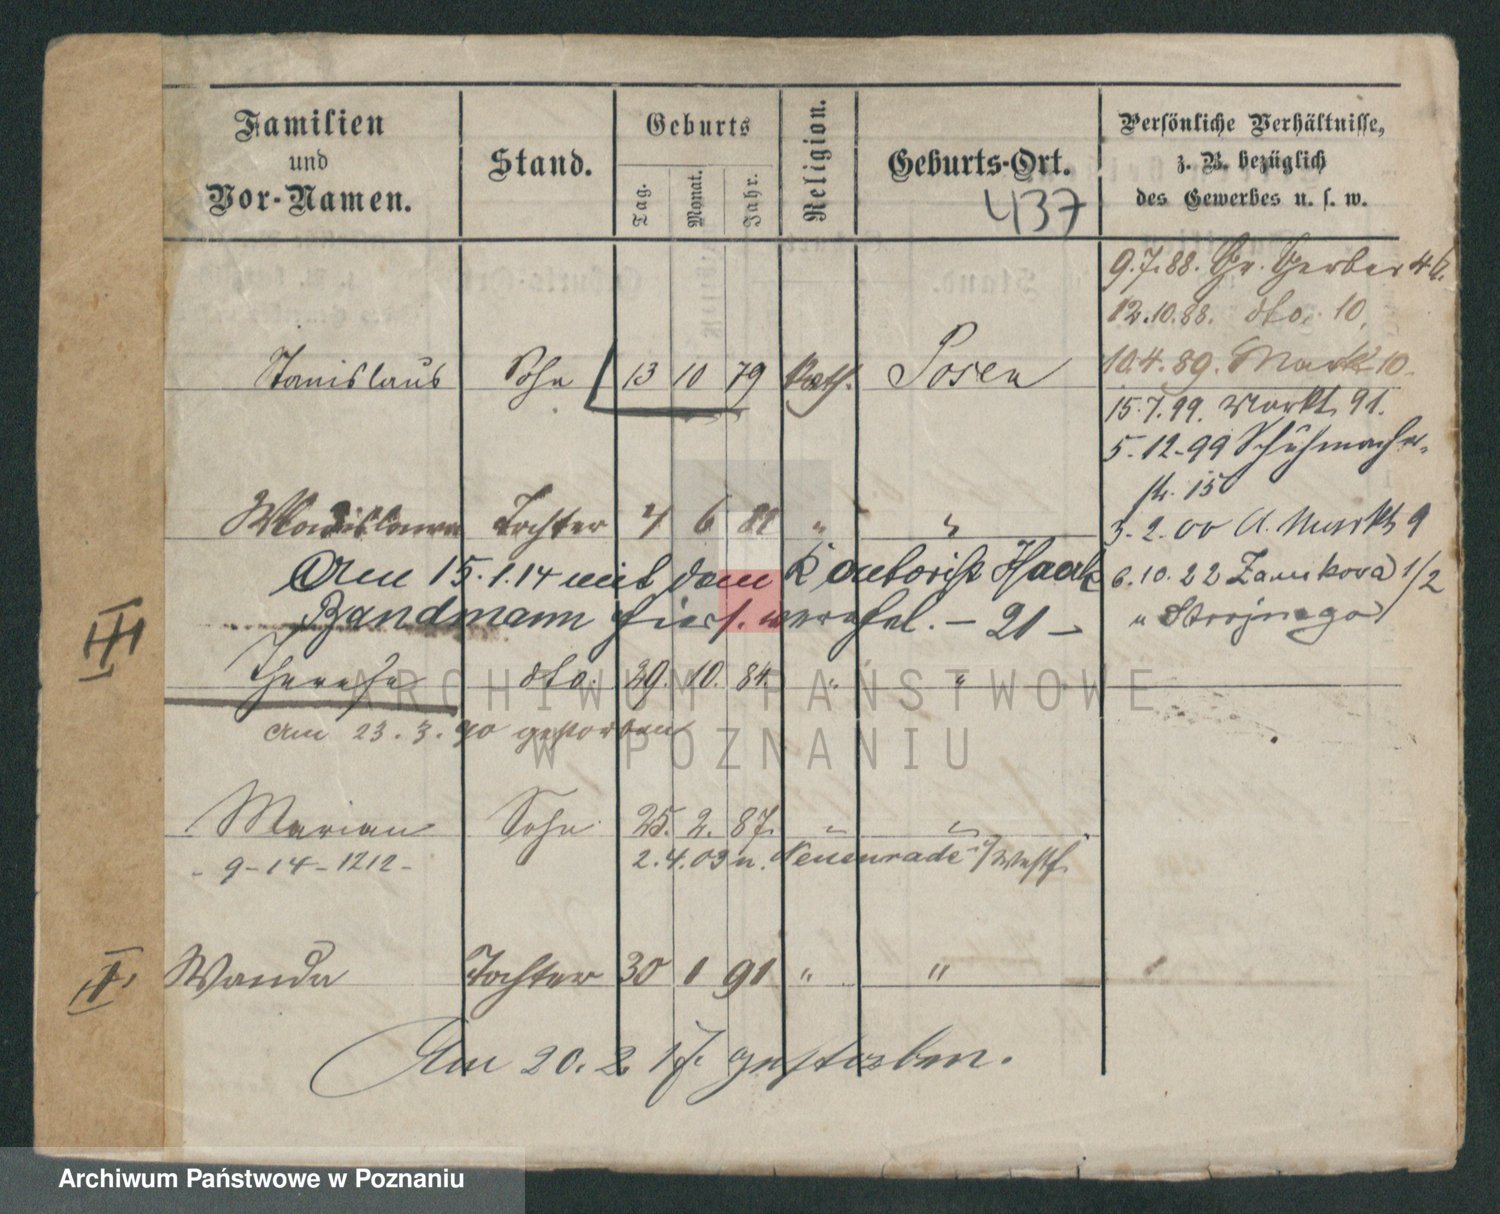 Familien
und
Vor-Namen.
Stand.
Geburts
Tag.
Monat.
Jahr.
Religion.
Geburts-Ort.
437
Persönliche Verhältnisse,
z. B. bezüglich
des Gewerbes u. s. w.
9.7.88. Gr. Gerber 46.
12.10.88. dto. 10.
Stanislaus Sohn 13 10 79 kath. Posen
10.4.89. Markt 10.
15.7.99. Markt 91.
5.12.99 Schuhmacher-
str. 15
Wladislawa Tochter 4 6 81 " "
3.2.00 A. Markt 9
Am 15.1.14 mit dem Kontorist
6.10.22 Zamkova 1/2
Bandmann hier s. verehel. - 21 -
" Strojnego
III
Therese dto. 29. 10. 84. " "
Am 23.3.90 gestorben
ARCHIWUM PAŃSTWOWE
W POZNANIU
Marian Sohn 25. 2. 87. " "
- 9-14-1212-
2.4.03 n. Neuenrade i/Westf.
I
Wanda Tochter 30 1 91 " "
Am 20.2.17. gestorben.
Archiwum Państwowe w Poznaniu